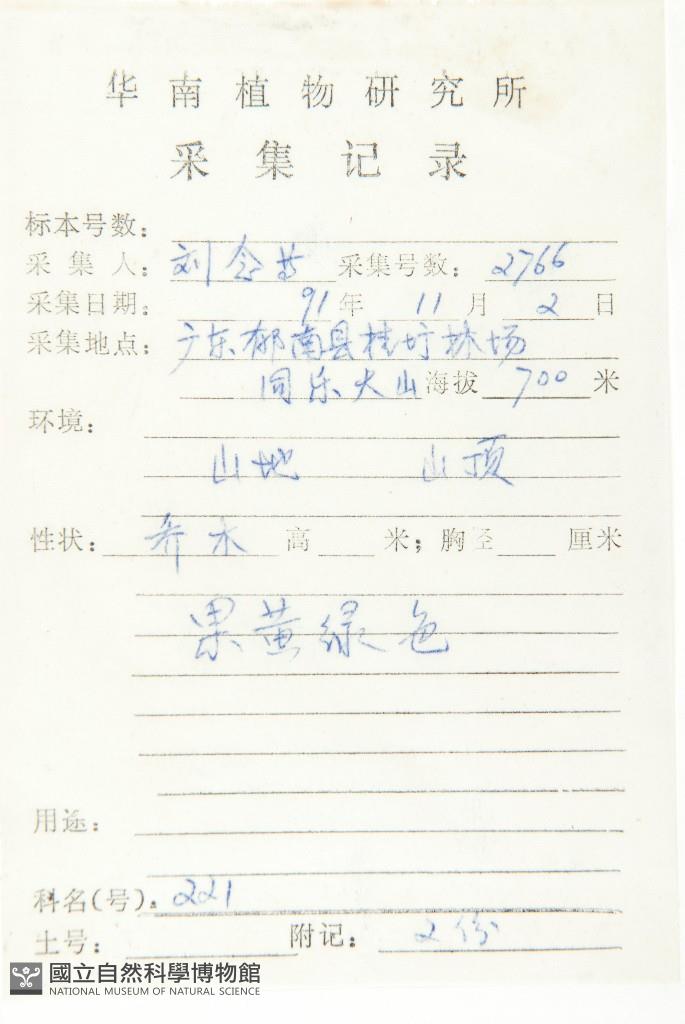 华南植物研究所
采集记录
标本号数:
采集人: 刘念 采集号数: 2766
采集日期: 91年 11月 2日
采集地点: 广东郁南县桂圩林场
同乐大山 海拔 700 米
环境:
山地 山顶
性状: 乔木 高 米; 胸径 厘米
果黄绿色
用途:
科名(号): 221
土号: 附记: 2份
國立自然科學博物館
NATIONAL MUSEUM OF NATURAL SCIENCE